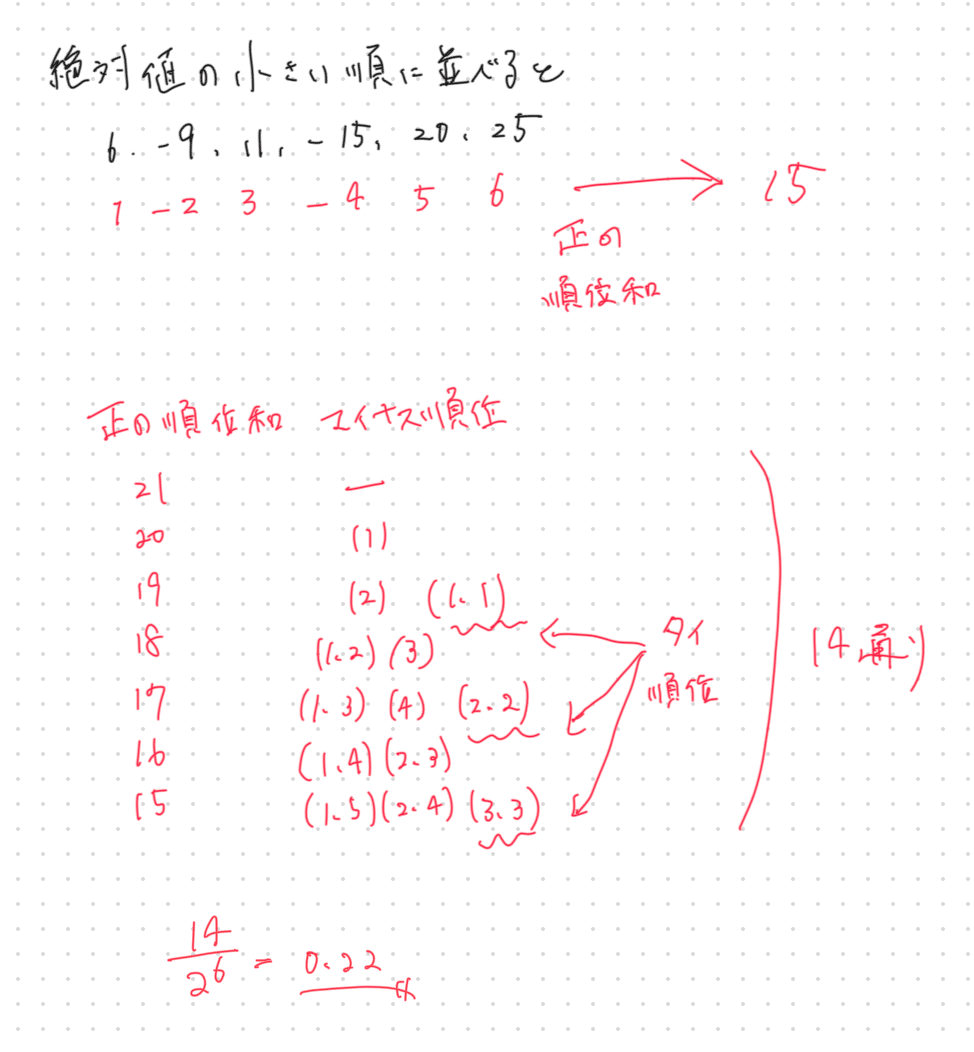 絶対値の小さい順に並べると
6. -9, 11, -15, 20, 25
1 -2 3 -4 5 6 → 15
正の
順位和
正の順位和 マイナス順位
21 —
20 (1)
19 (2) (1.1)
18 (1.2) (3)
17 (1.3) (4) (2.2)
16 (1.4) (2.3)
15 (1.5) (2.4) (3.3)
タイ
順位
14通り
14/2^6 = 0.22